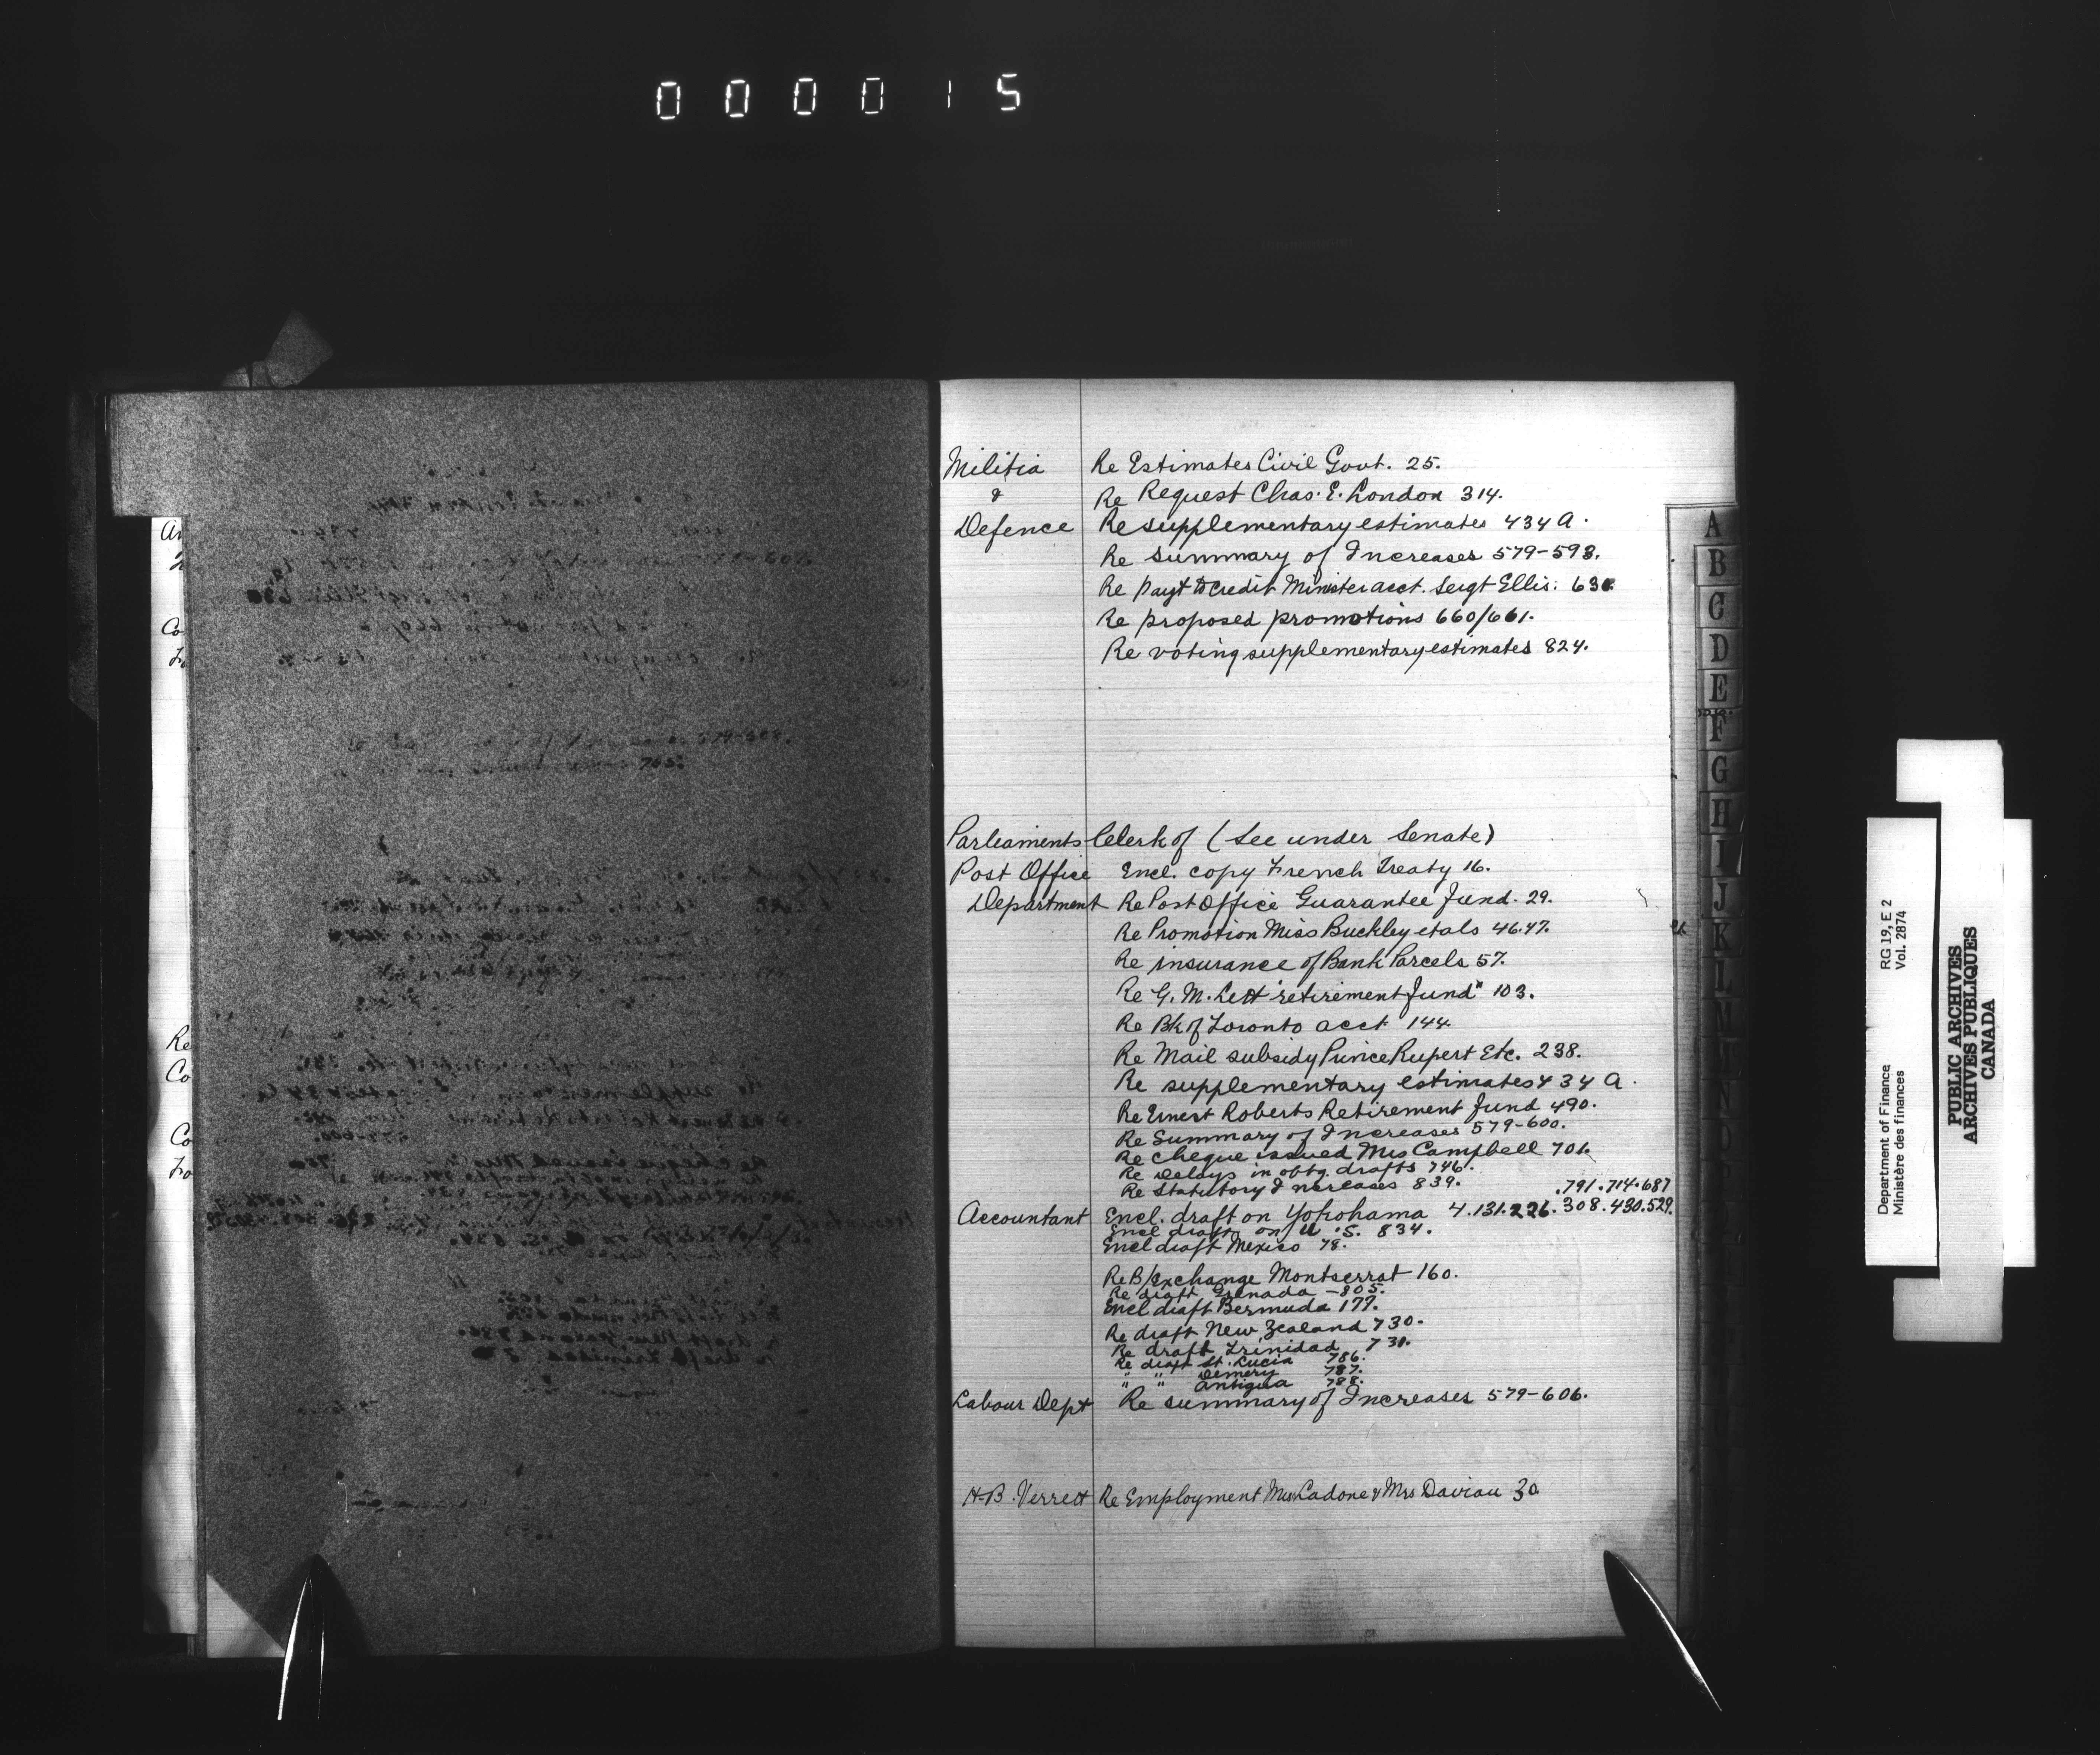 000015
Militia Re Estimates Civil Govt. 25.
& Re Request Chas. E. London 314.
Defence Re supplementary estimates 434 A.
Re summary of Increases 579-593.
Re payt to credit Minister acct. Sergt Ellis. 630
Re proposed promotions 660/661.
Re voting supplementary estimates 824.
Parleaments Clerk of (See under Senate)
Post Office Encl. copy French Treaty 16.
Department Re Post Office Guarantee Fund. 29.
Re Promotion Miss Buckley et als 46.47.
Re insurance of Bank Parcels 57.
Re G. M. Lett "retirement fund" 103.
Re Bk of Toronto acct 144.
Re Mail subsidy Prince Rupert Etc. 238.
Re supplementary estimates 434 A.
Re Ernest Roberts Retirement Fund 490.
Re Summary of Increases 579-600.
Re cheque issued Mrs Campbell 701.
Re Delays in obtg. drafts 746.
Re Statutory Increases 839. .791.714.687
Accountant Encl. draft on Yokohama 4.131.226.308.430.529.
Encl draft on U.S. 834.
Encl draft Mexico 78.
Re B/exchange Montserrat 160.
Re draft Grenada - 805.
Encl draft Bermuda 177.
Re draft New Zealand 730.
Re draft Trinidad 731.
Re draft St. Lucia 786.
" " Demery 787.
" " Antigua 788.
Labour Dept Re summary of Increases 579-606.
H.B. Verrett Re Employment Mrs Ladone & Mrs Daviau 30
A
B
C
D
E
F
G
H
I
J
K
L
M
N
O
Department of Finance RG 19, E 2
Ministère des finances Vol. 2874
PUBLIC ARCHIVES
ARCHIVES PUBLIQUES
CANADA